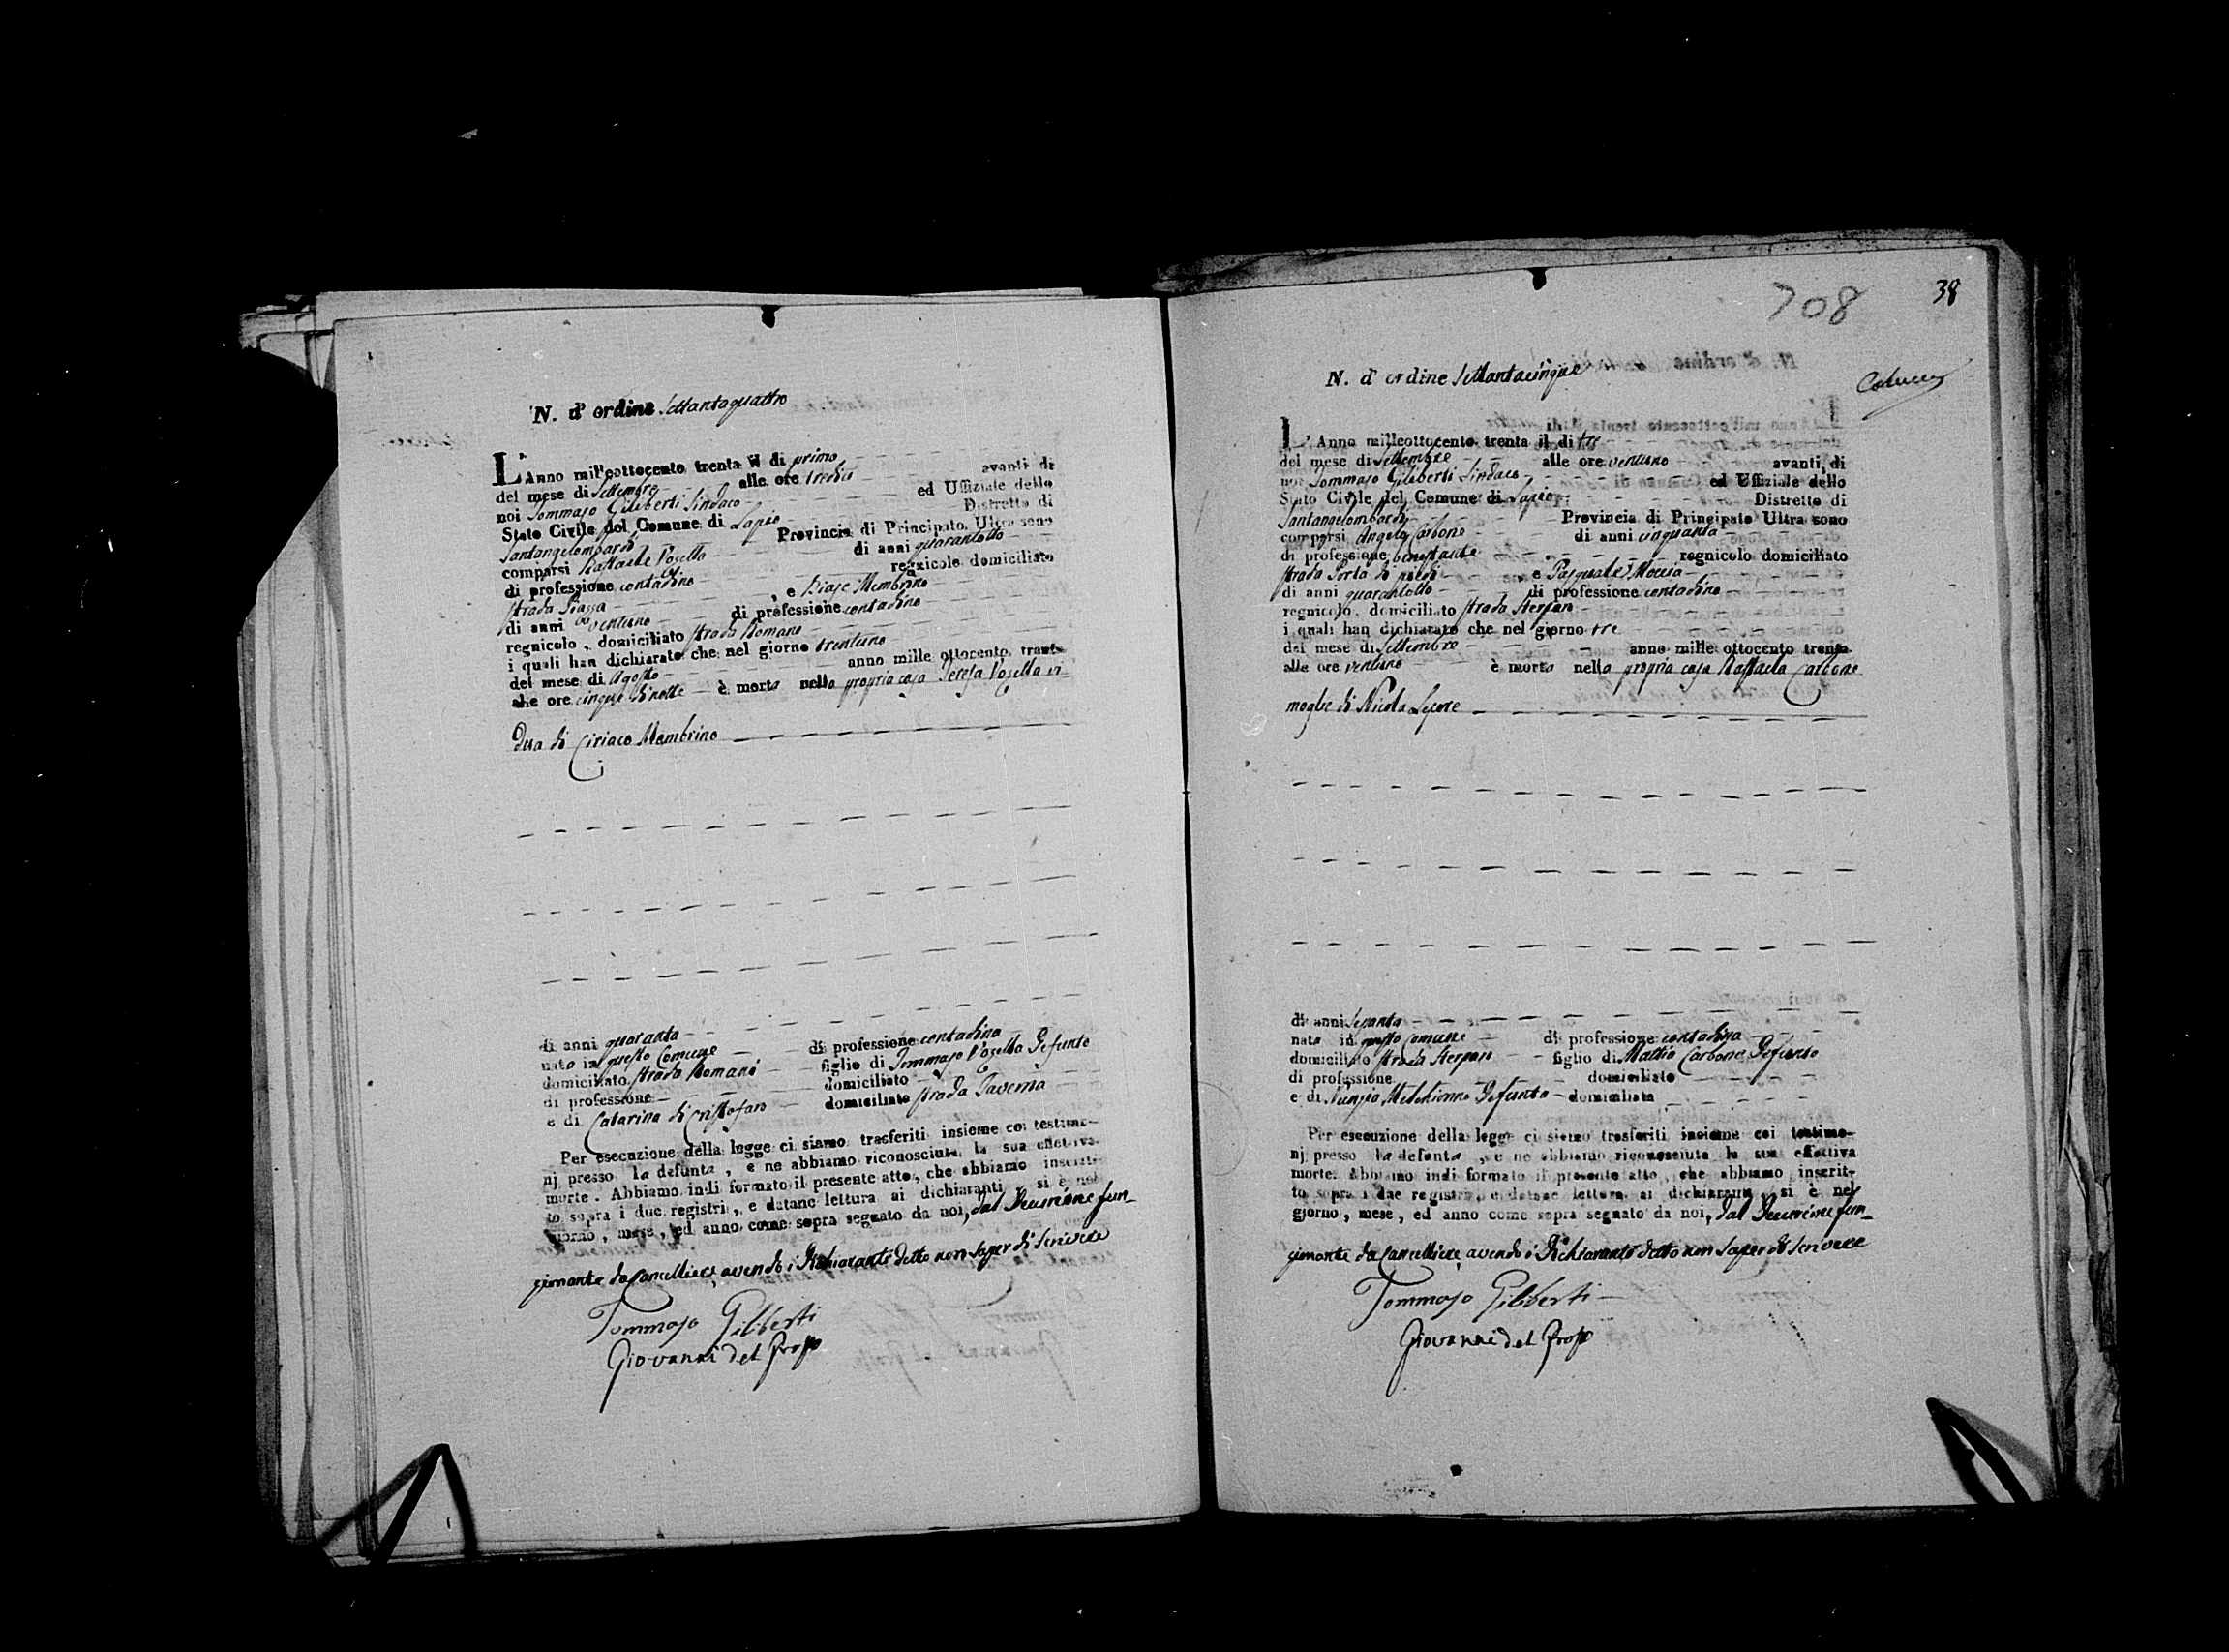 N. d' ordine Settantaquattro
L'Anno mille ottocento trenta il di primo
del mese di Settembre alle ore tredici avanti di
noi Tommaso Giliberti Sindaco ed Uffiziale dello
Stato Civile del Comune di Lapio Distretto di
Santangelombardi Provincia di Principato Ultra sono
comparsi Raffaele Vozella di anni quarantotto
di professione contadino regnicolo domiciliato
strada Piazza , e Biase Membrino
di anni ventuno di professione contadino
regnicolo , domiciliato strada Romano
i quali han dichiarato che nel giorno trentuno
del mese di Agosto anno mille ottocento trenta
alle ore cinque di notte è morta nella propria casa Teresa Vozella ve
dova di Ciriaco Membrino
di anni quaranta
nata in questo Comune di professione contadina
domiciliato strada Romano figlio di Tommaso Vozella Defunto
di professione domiciliato
e di Catarina di Cristofaro domiciliata strada Taverna
Per esecuzione della legge ci siamo trasferiti insieme coi testimo-
nj presso la defunta , e ne abbiamo riconosciuta la sua effettiva
morte . Abbiamo indi formato il presente atto , che abbiamo inscrit-
to sopra i due registri , e datane lettura ai dichiaranti , si è nel
giorno , mese , ed anno come sopra segnato da noi, dal Decurione fun-
zionante da Cancelliere, avendo i Dichiaranti detto non saper di scrivere
Tommaso Giliberti
Giovanni del Grosso
708
38
N. d' ordine Settantacinque
L' Anno milleottocento trenta il di tre
del mese di Settembre alle ore ventuno avanti di
noi Tommaso Giliberti Sindaco ed Uffiziale dello
Stato Civile del Comune di Lapio Distretto di
Santangelombardi Provincia di Principato Ultra sono
comparsi Angelo Carbone di anni cinquanta
di professione benestante regnicolo domiciliato
strada Porta di piedi e Pasquale Moccia
di anni quarantotto di professione contadino
regnicolo , domiciliato strada
i quali han dichiarato che nel giorno tre
del mese di Settembre anno mille ottocento trenta
alle ore ventuno è morta nella propria casa Raffaela Carbone
moglie di Nicola Lepore
di anni
nata in questo Comune di professione contadina
domiciliato strada figlio di Mattia Carbone Defunto
di professione domiciliato
e di Nunzia Melchionna Defunta domiciliata
Per esecuzione della legge ci siamo trasferiti insieme coi testimo-
nj presso la defunta , e ne abbiamo riconosciuta la sua effettiva
morte. Abbiamo indi formato il presente atto , che abbiamo inscrit-
to sopra i due registri , e datane lettura ai dichiaranti , si è nel
giorno , mese , ed anno come sopra segnato da noi, dal Decurione fun-
zionante da Cancelliere, avendo i Dichiaranti detto non saper di scrivere
Tommaso Giliberti
Giovanni del Grosso